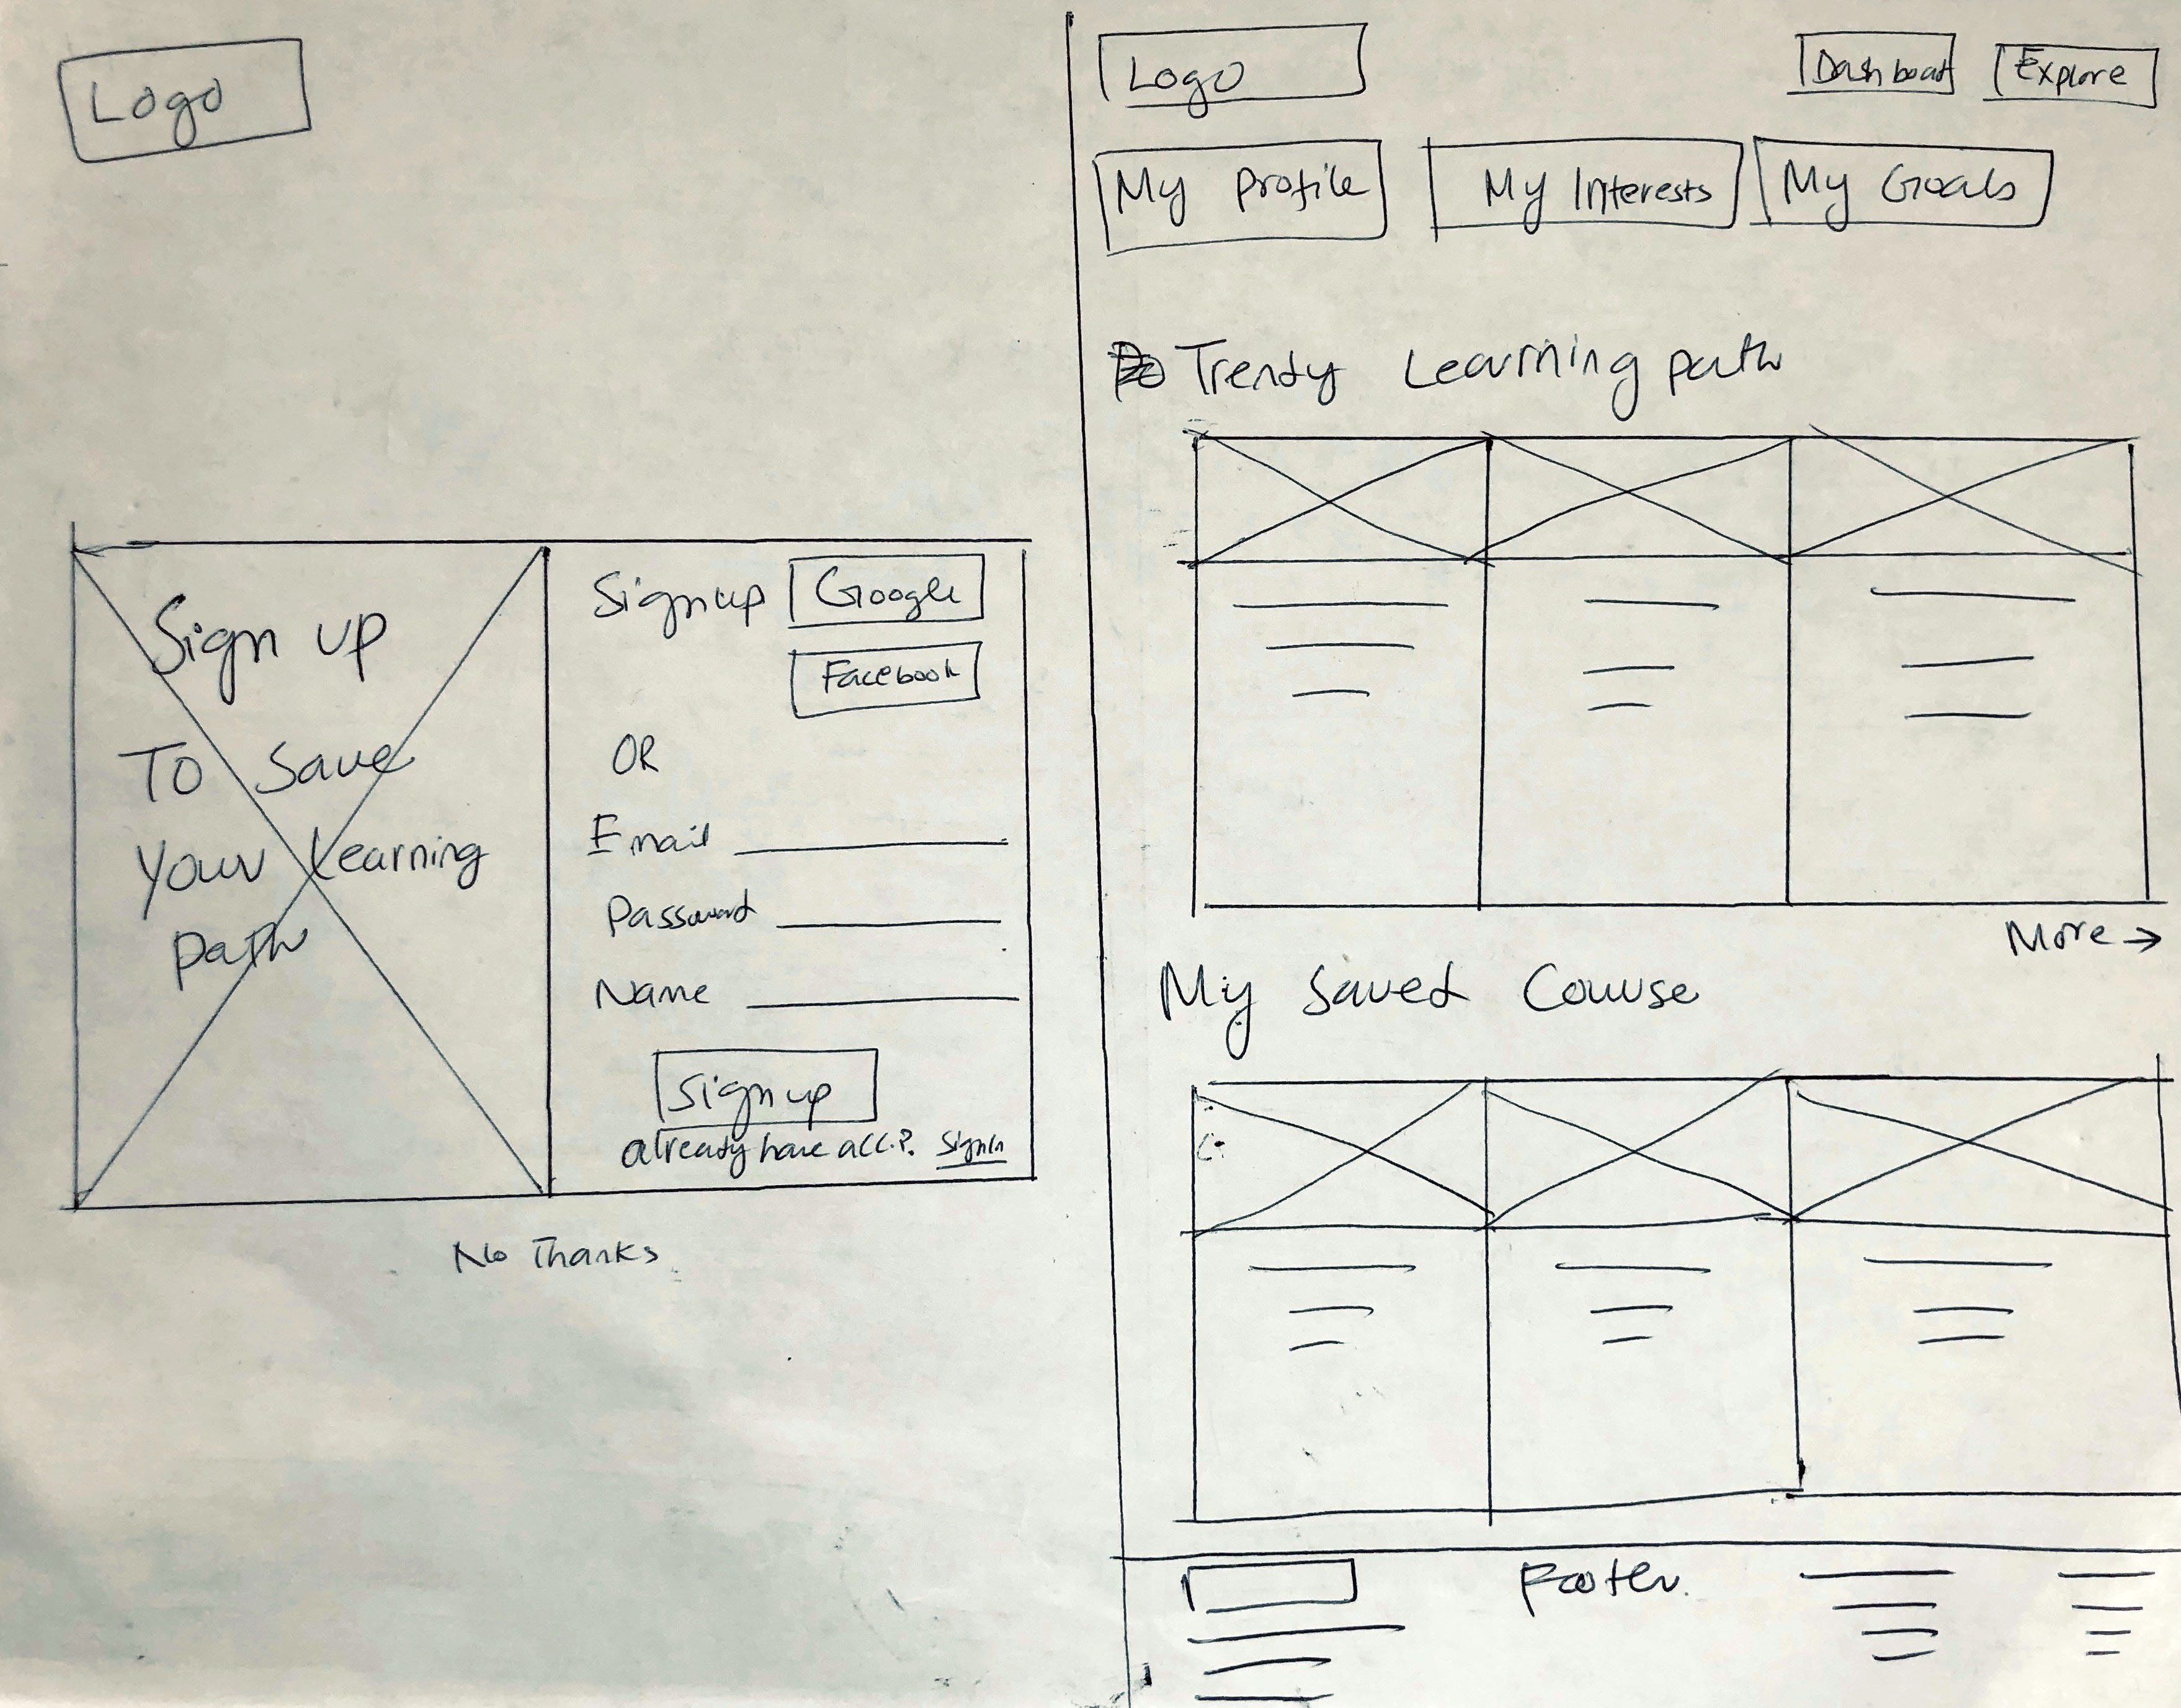 Logo
Sign up
To Save
Your Learning
path
Signup Google
Facebook
OR
Email
Password
Name
Sign up
already have acc.? Sign In
No Thanks
Logo
Dashboard Explore
My Profile My Interests My Goals
Trendy Learning path
More →
My Saved Course
Footer.